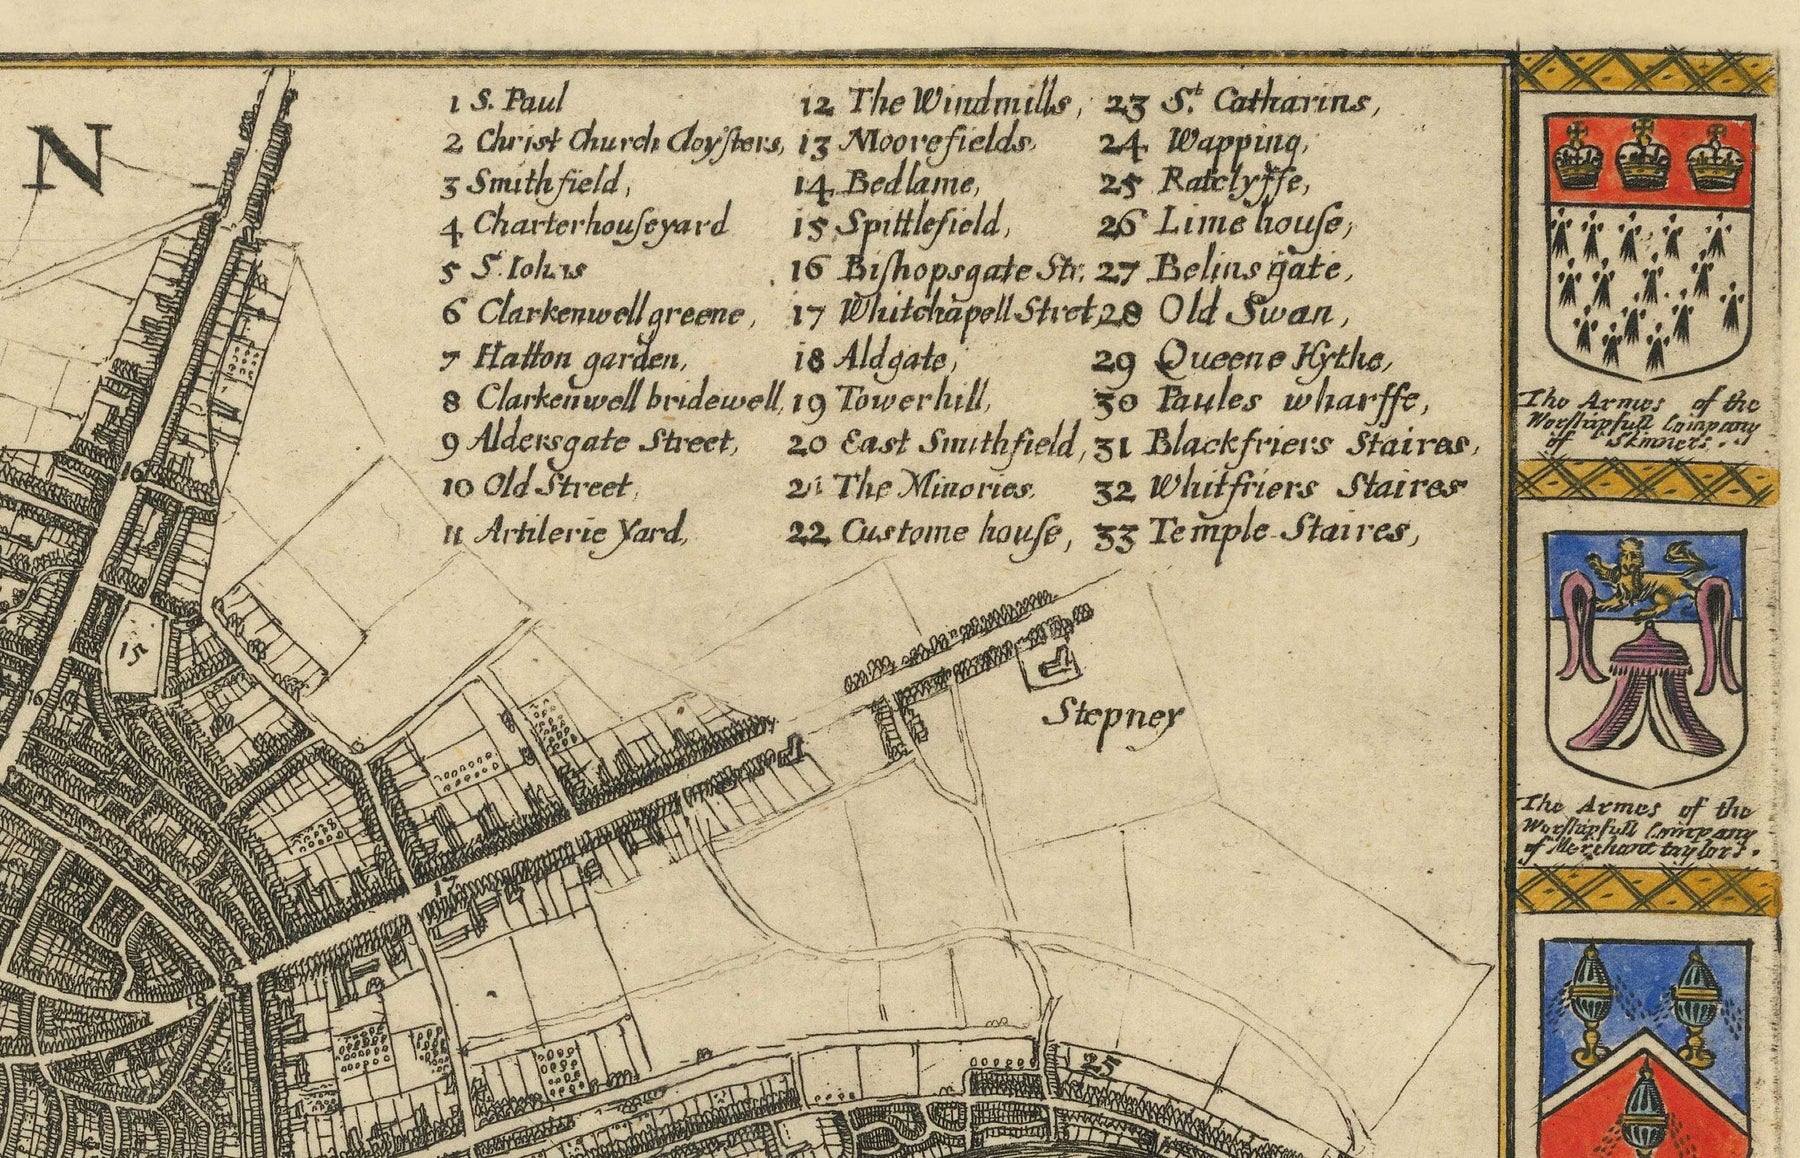 N
1 S. Paul
2 Christ Church Cloyſters,
3 Smithfield,
4 Charterhouſeyard
5 St. Iohns
6 Clarkenwell greene,
7 Hatton garden,
8 Clarkenwell bridewell,
9 Aldersgate Street,
10 Old Street,
11 Artilerie Yard,
12 The Windmills,
13 Moorefields,
14 Bedlame,
15 Spittlefield,
16 Biſhopsgate Str.
17 Whitchapell Stret,
18 Aldgate,
19 Towerhill,
20 East Smithfield,
21 The Minories,
22 Custome houſe,
23 St. Catharins,
24 Wapping,
25 Ratclyffe,
26 Lime houſe,
27 Belinsgate,
28 Old Swan,
29 Queene Hythe,
30 Paules wharffe,
31 Blackfriers Staires,
32 Whitfriers Staires
33 Temple Staires,
16
15
16
Stepney
17
18
25
The Armes of the
Worſhipfull Company
of Skinners.
The Armes of the
Worſhipfull Company
of Merchant taylors.